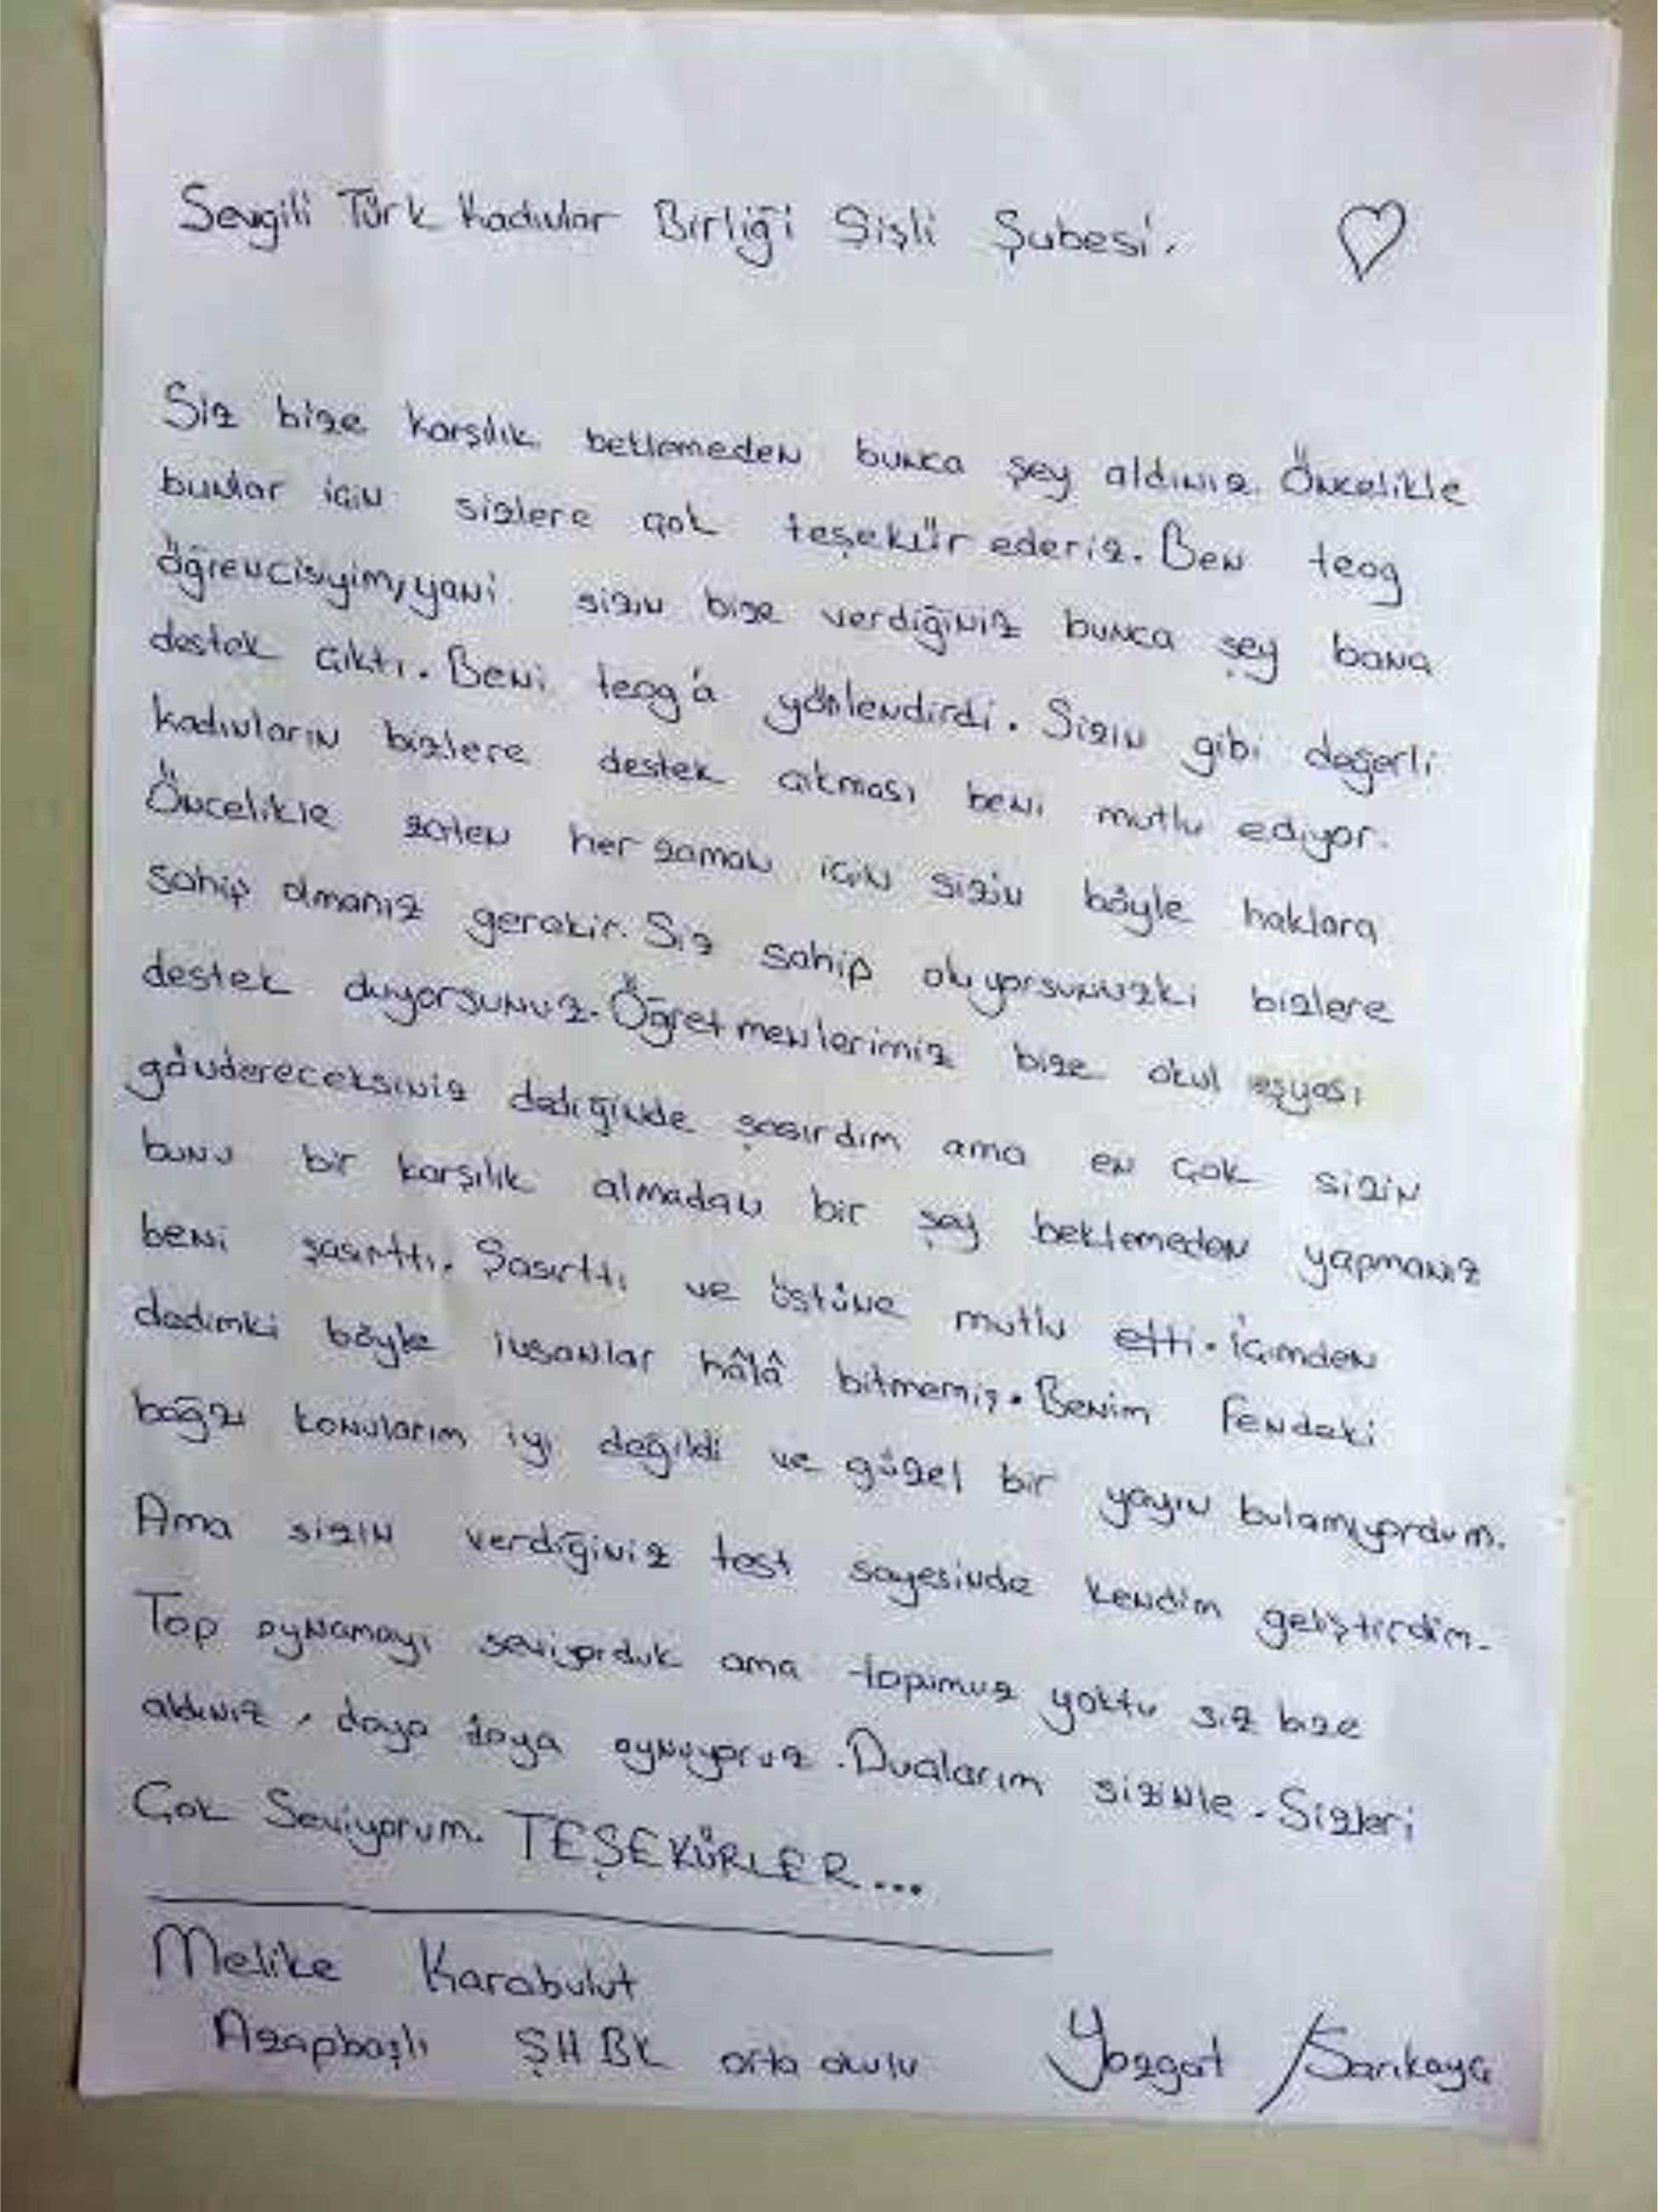 Sevgili Türk Kadınlar Birliği Şişli Şubesi.
Siz bize karşılık beklemeden bunca şey aldınız. Öncelikle
bunlar için sizlere çok teşekür ederiz. Ben teog
öğrencisiyim, yani sizin bize verdiğiniz bunca şey bana
destek çıktı. Beni teog'a yönlendirdi. Sizin gibi değerli
kadınların bizlere destek çıkması beni mutlu ediyor.
Öncelikle zaten her zaman için sizin böyle haklara
sahip olmanız gerekir. Siz sahip oluyorsunuzki bizlere
destek duyorsunuz. Öğretmenlerimiz bize okul eşyası
göndereceksiniz dediğinde şaşırdım ama en çok sizin
bunu bir karşılık almadan bir şey beklemeden yapmanız
beni şaşırttı. Şaşırttı ve üstüne mutlu etti. İçimden
dedimki böyle insanlar hâlâ bitmemiş. Benim Fendeki
bağzı konularım iyi değildi ve güzel bir yayın bulamıyordum.
Ama sizin verdiğiniz test sayesinde kendim geliştirdim.
Top oynamayı seviyorduk ama topımuz yoktu siz bize
aldınız, doya doya oynuyoruz. Dualarım sizinle. Sizleri
Çok Seviyorum. TEŞEKÜRLER...
Melike Karabulut
Azapbaşlı ŞHBK orta okulu Yozgat /Sarıkaya